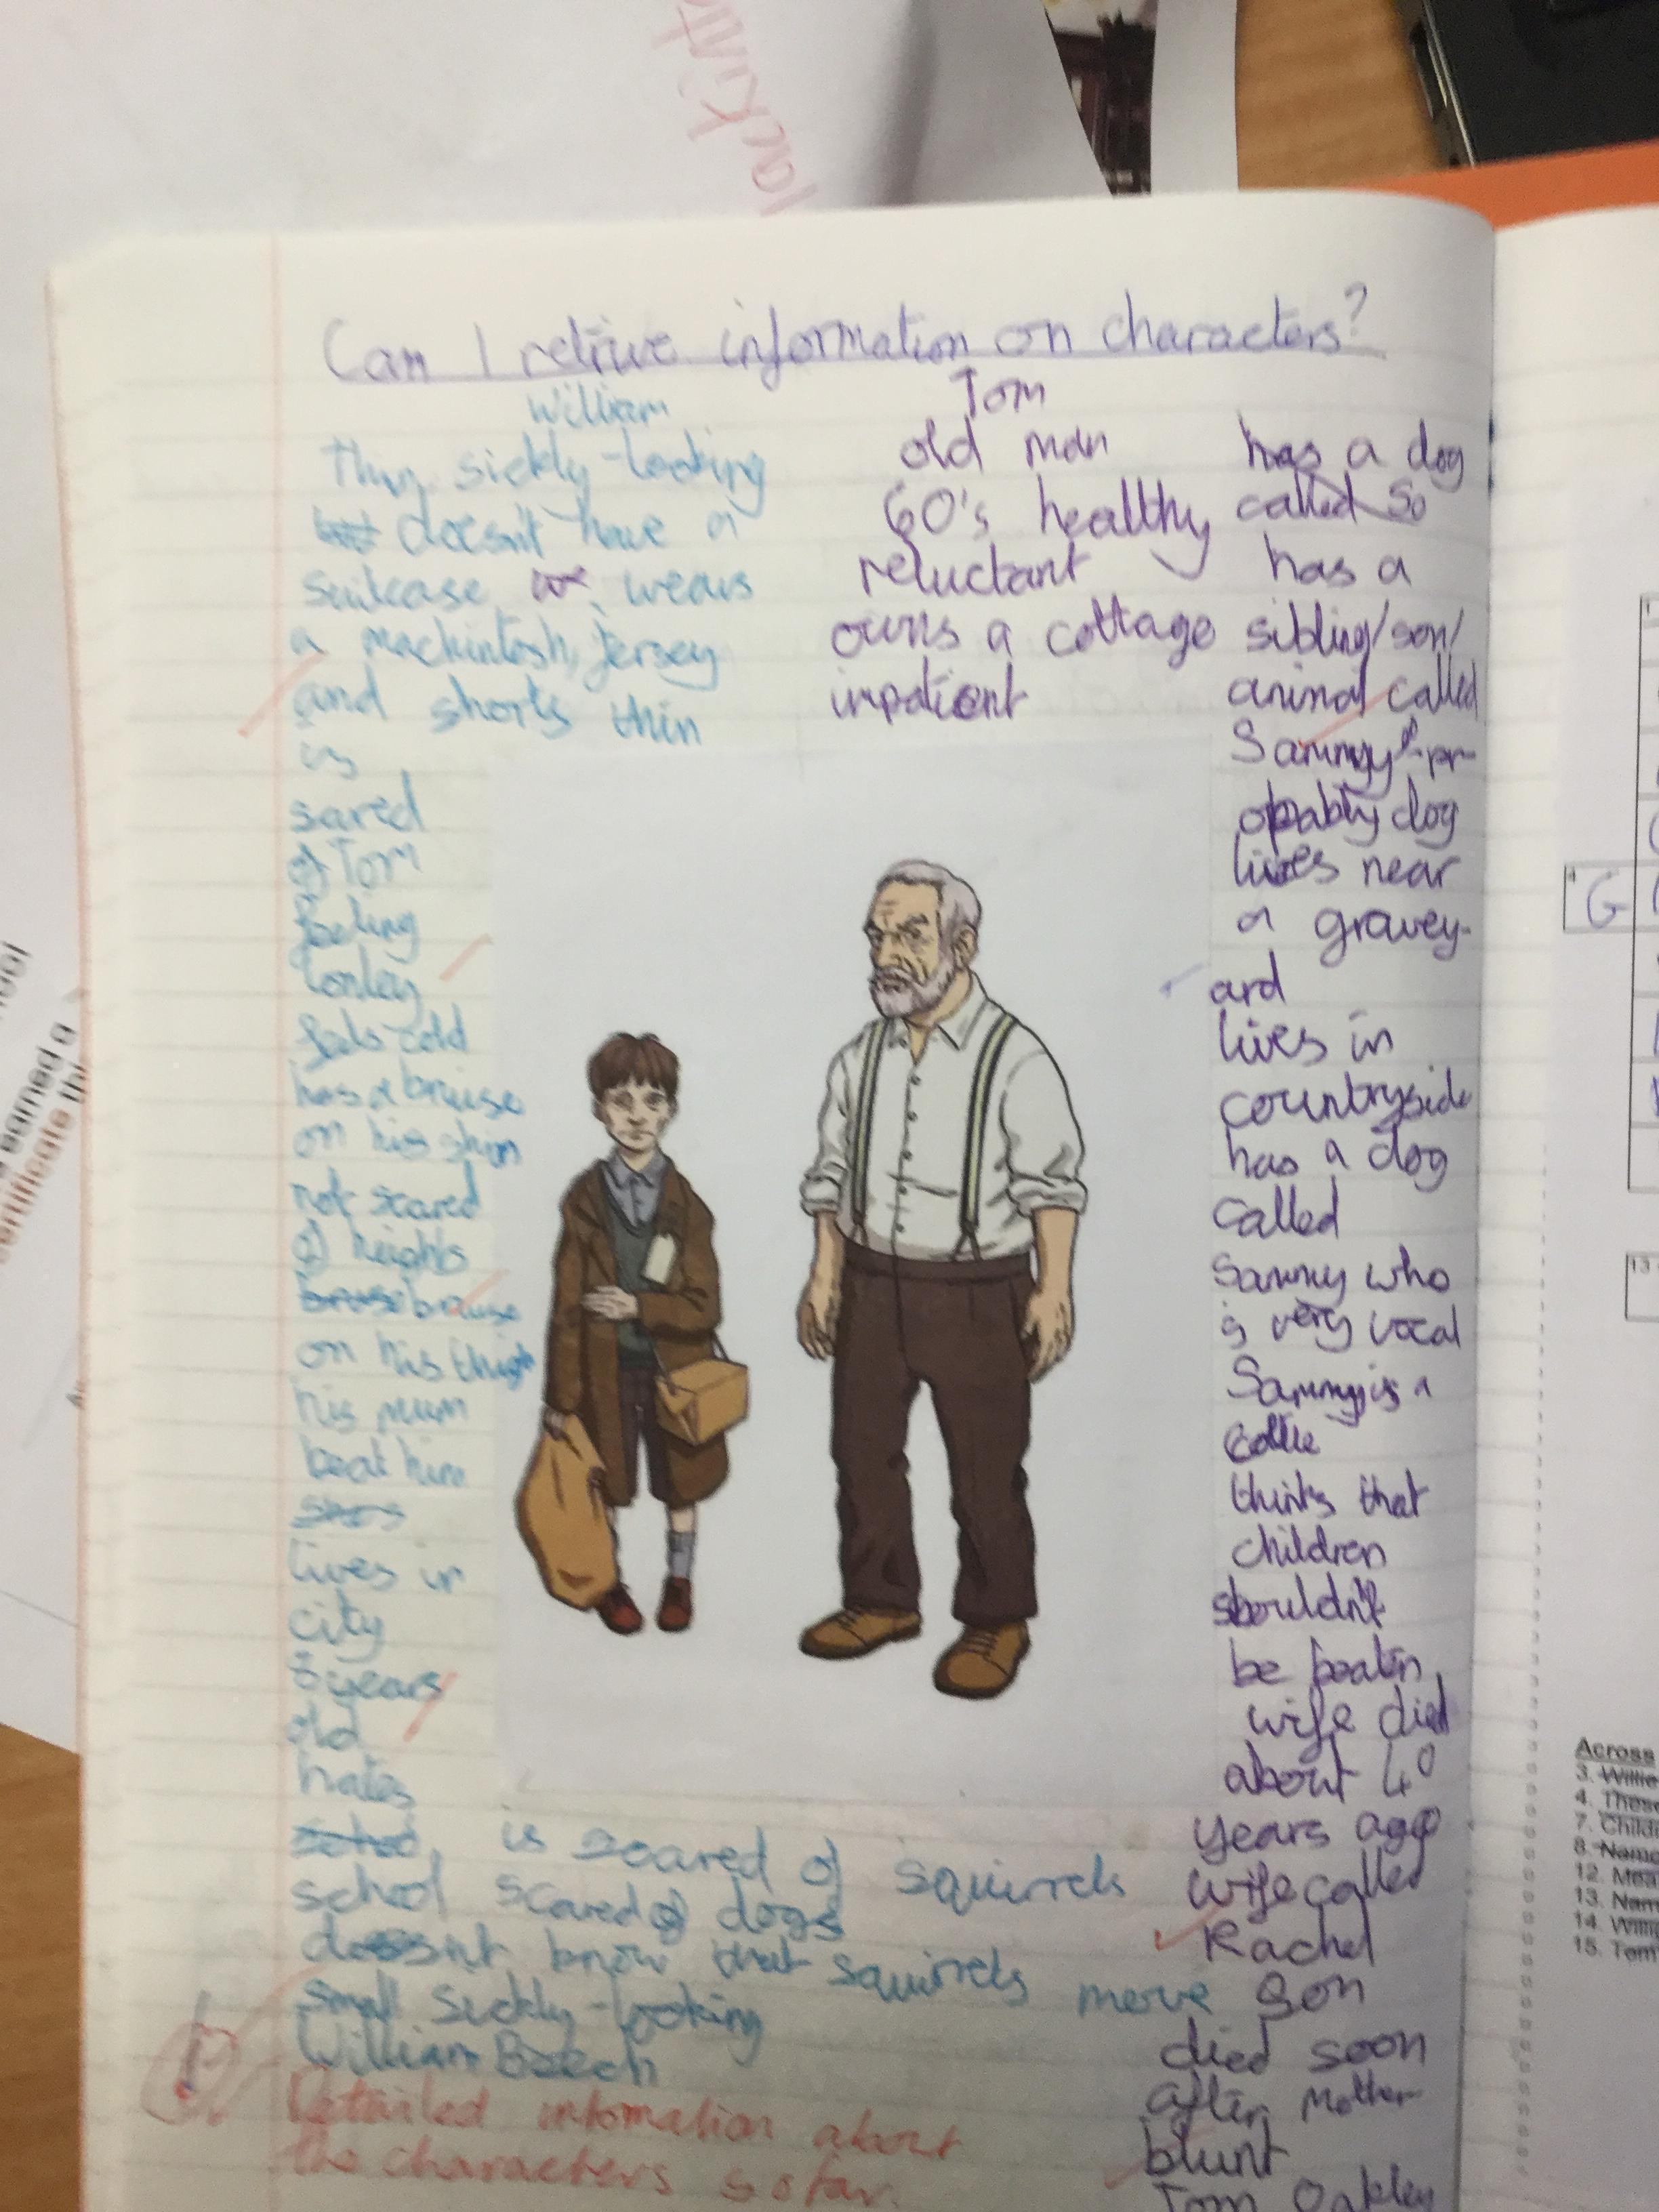 Can I retrive information on characters?
William
Thin sickly-looking
but doesn't have a
suitcase we wears
a mackintosh, jersey
and shorts thin
is
scared
of Tom
feeling
lonley
feels cold
has a bruise
on his shin
not scared
of heights
bruise bruise
on his thigh
his mum
beat him
lives in
city
8 years
old
hates
school
school
is scared of squirrels
scared of dogs
doesn't know that squirrels move
small sickly-looking
William Beech
Tom
old man
60's healthy
reluctant
owns a cottage
inpatient
has a dog
called So
has a
sibling/son/
animal called
Sammy - pr-
obably dog
lives near
a gravey-
ard
lives in
countryside
has a dog
called
Sammy who
is very vocal
Sammy is a
collie
thinks that
children
shouldn't
be beaten
wife died
about 40
years ago
wife called
Rachel
son
died soon
after mother
blunt
Tom Oakley
Detailed infomation about
the characters so far.
G
13
Across
3. Willie
4. These
7. Child
8. Name
12. Mea
13. Nam
14. Willi
15. Tom